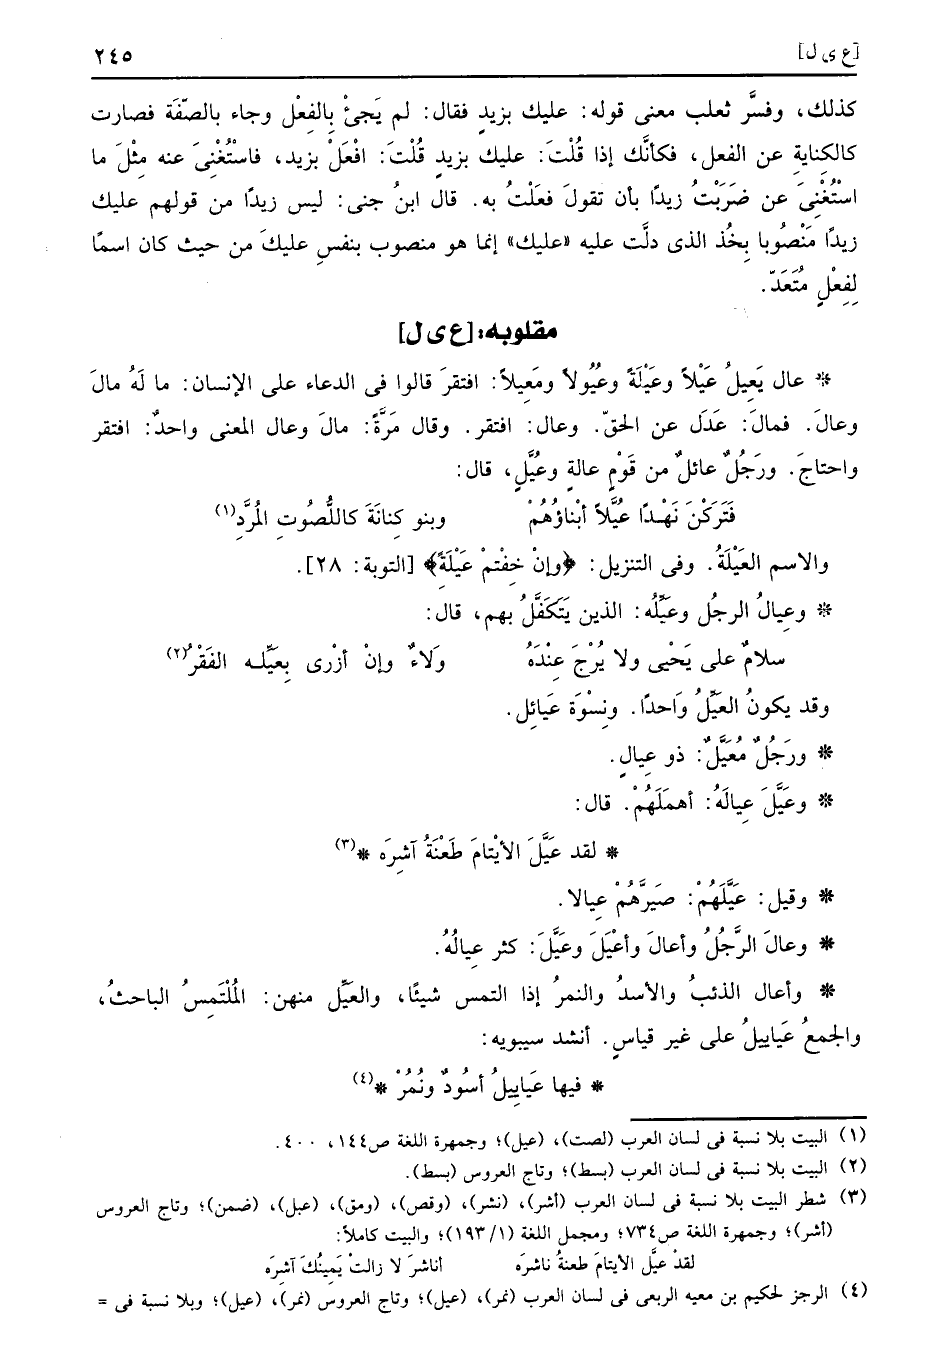 [ع ى ل] ٢٤٥
كذلك، وفسَّر ثعلب معنى قوله: عليك بزيدٍ فقال: لم يَجئْ بِالفِعْل وجاء بالصّفَة فصارت
كالكنايةِ عن الفعل، فكأنَّك إذا قُلْتَ: عليك بزيدٍ قُلْتَ: افْعَلْ بزيد، فاسْتُغْنِىَ عنه مثْلَ ما
اسْتُغْنِىَ عن ضَرَبْتُ زيدًا بأن تقولَ فعلْتُ به. قال ابنُ جنى: ليس زيدًا من قولهم عليك
زيدًا مَنْصُوبا بِخُذ الذى دلَّت عليه «عليك» إنما هو منصوب بنفسِ عليكَ من حيث كان اسمًا
لِفِعْلٍ مُتَعَدّ.
مقلوبه: [ع ى ل]
* عال يَعِيلُ عَيْلاً وعَيْلَةً وعُيُولاً ومَعِيلاً: افتقرَ قالوا فى الدعاء على الإنسان: ما لَهُ مالَ
وعالَ. فمالَ: عَدَلَ عن الحقّ. وعال: افتقر. وقال مَرَّةً: مالَ وعال المعنى واحدٌ: افتقر
واحتاجَ. ورجُلٌ عائلٌ من قَوْمٍ عالةٍ وعُيَّلٍ، قال:
فَتَرَكْنَ نَهْدًا عُيَّلاً أبْناؤُهُمْ وبنو كِنانَةَ كاللُّصُوتِ المُرَّدِ(١)
والاسم العَيْلَةُ. وفى التنزيل: ﴿وإنْ خِفْتمْ عَيْلَةً﴾ [التوبة: ٢٨].
* وعِيالُ الرجُل وعَيِّلُه: الذين يَتَكَفَّلُ بهم، قال:
سلامٌ على يَحْيى ولا يُرْجَ عِنْدَهُ وَلاءٌ وإنْ أزْرى بِعَيِّله الفَقْرُ(٢)
وقد يكونُ العَيِّلُ وَاحدًا. ونِسْوَة عَيائل.
* ورجُلٌ مُعَيَّلٌ: ذو عِيالٍ.
* وعَيَّلَ عِيالَهُ: أهملَهُمْ. قال:
* لقد عَيَّلَ الأيْتامَ طَعْنَةُ آشِرَه *(٣)
* وقيل: عَيَّلَهُمْ: صَيَرَّهُمْ عِيالا.
* وعالَ الرَّجُلُ وأعالَ وأعْيَلَ وعَيَّلَ: كثر عيالُهُ.
* وأعال الذئبُ والأسدُ والنمرُ إذا التمس شيئًا، والعَيِّل منهن: المُلْتَمِسُ الباحثُ،
والجمعُ عَيايِيلُ على غير قياسٍ. أنشد سيبويه:
* فيها عَيايِيلُ أسُودٌ ونُمُرْ *(٤)
(١) البيت بلا نسبة فى لسان العرب (لصت)، (عيل)؛ وجمهرة اللغة ص١٤٤، ٤٠٠.
(٢) البيت بلا نسبة فى لسان العرب (بسط)؛ وتاج العروس (بسط).
(٣) شطر البيت بلا نسبة فى لسان العرب (أشر)، (نشر)، (وقص)، (ومق)، (عبل)، (ضمن)؛ وتاج العروس
(أشر)؛ وجمهرة اللغة ص٧٣٤؛ ومجمل اللغة (١/١٩٣)؛ والبيت كاملاً:
لقدْ عيَّل الأيتامَ طعنةُ ناشرَه أناشرَ لا زالتْ يَمِينُكَ آشرَه
(٤) الرجز لحكيم بن معيه الربعى فى لسان العرب (نمر)، (عيل)؛ وتاج العروس (نمر)، (عيل)؛ وبلا نسبة فى =